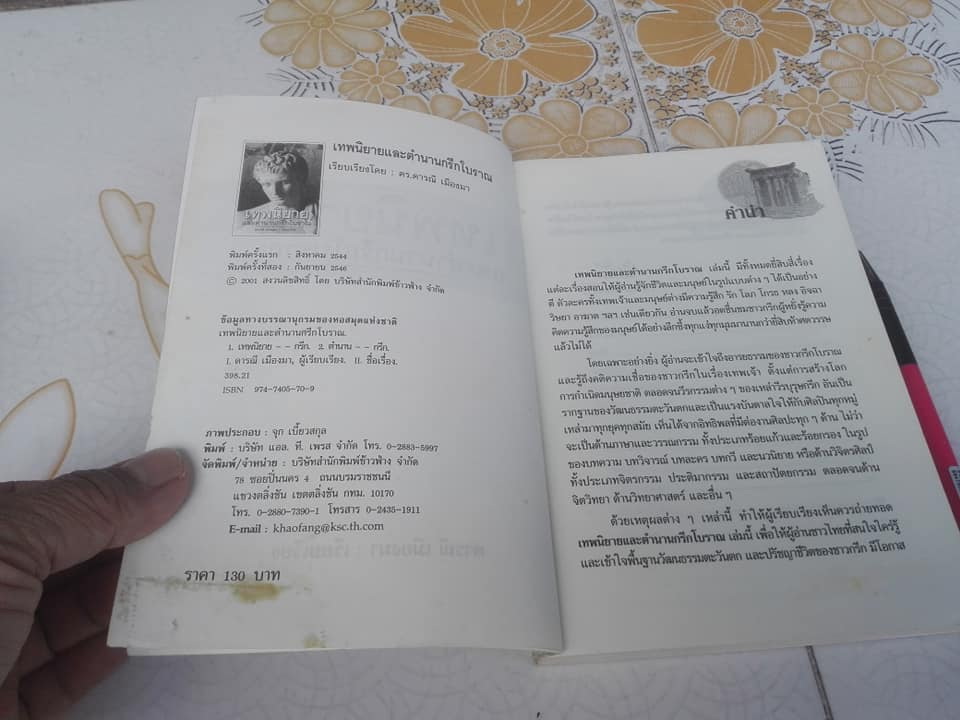 เทพนิยายและตำนานกรีกโบราณ
เรียบเรียงโดย : ดร.ดารณี เมืองมา
เทพนิยาย
และตำนานกรีกโบราณ
พิมพ์ครั้งแรก : สิงหาคม 2544
พิมพ์ครั้งที่สอง : กันยายน 2546
© 2001 สงวนลิขสิทธิ์ โดย บริษัทสำนักพิมพ์ข้าวฟ่าง จำกัด
ข้อมูลทางบรรณานุกรมของหอสมุดแห่งชาติ
เทพนิยายและตำนานกรีกโบราณ.
1. เทพนิยาย - - กรีก. 2. ตำนาน - - กรีก.
I. ดารณี เมืองมา, ผู้เรียบเรียง. II. ชื่อเรื่อง.
398.21
ISBN 974-7405-70-9
ภาพประกอบ : จุก เบี้ยวสกุล
พิมพ์ : บริษัท แอล. ที. เพรส จำกัด โทร. 0-2883-5997
จัดพิมพ์/จำหน่าย : บริษัทสำนักพิมพ์ข้าวฟ่าง จำกัด
78 ซอยปิ่นนคร 4 ถนนบรมราชชนนี
แขวงตลิ่งชัน เขตตลิ่งชัน กทม. 10170
โทร. 0-2880-7390-1 โทรสาร 0-2435-1911
E-mail : khaofang@ksc.th.com
ราคา 130 บาท
คำนำ
เทพนิยายและตำนานกรีกโบราณ เล่มนี้ มีทั้งหมดยี่สิบสี่เรื่อง
แต่ละเรื่องสอนให้ผู้อ่านรู้จักชีวิตและมนุษย์ในรูปแบบต่าง ๆ ได้เป็นอย่าง
ดี ตัวละครทั้งเทพเจ้าและมนุษย์ต่างมีความรู้สึก รัก โลภ โกรธ หลง อิจฉา
ริษยา อาฆาต ฯลฯ เช่นเดียวกัน อ่านจบแล้วอดชื่นชมชาวกรีกผู้หยั่งรู้ความ
คิดความรู้สึกของมนุษย์ได้อย่างลึกซึ้งทุกแง่ทุกมุมมานานกว่ายี่สิบห้าศตวรรษ
แล้วไม่ได้
โดยเฉพาะอย่างยิ่ง ผู้อ่านจะเข้าใจถึงอารยธรรมของชาวกรีกโบราณ
และรู้ถึงคติความเชื่อของชาวกรีกในเรื่องเทพเจ้า ตั้งแต่การสร้างโลก
การกำเนิดมนุษยชาติ ตลอดจนวีรกรรมต่าง ๆ ของเหล่าวีรบุรุษกรีก อันเป็น
รากฐานของวัฒนธรรมตะวันตกและเป็นแรงบันดาลใจให้กับศิลปินทุกหมู่
เหล่ามาทุกยุคทุกสมัย เห็นได้จากอิทธิพลที่มีต่องานศิลปะทุก ๆ ด้าน ไม่ว่า
จะเป็นด้านภาษาและวรรณกรรม ทั้งประเภทร้อยแก้วและร้อยกรอง ในรูป
ของบทความ บทวิจารณ์ บทละคร บทกวี และนวนิยาย หรือด้านวิจิตรศิลป์
ทั้งประเภทจิตรกรรม ประติมากรรม และสถาปัตยกรรม ตลอดจนด้าน
จิตวิทยา ด้านวิทยาศาสตร์ และอื่น ๆ
ด้วยเหตุผลต่าง ๆ เหล่านี้ ทำให้ผู้เรียบเรียงเห็นควรถ่ายทอด
เทพนิยายและตำนานกรีกโบราณ เล่มนี้ เพื่อให้ผู้อ่านชาวไทยที่สนใจใคร่รู้
และเข้าใจพื้นฐานวัฒนธรรมตะวันตก และปรัชญาชีวิตของชาวกรีก มีโอกาส